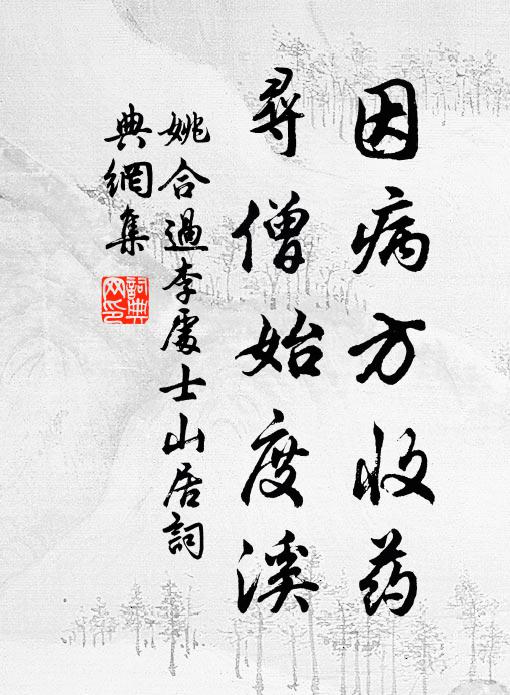 因病方收药
尋僧始度溪
姚合過李處士山居詞
典網集
詞典
网印